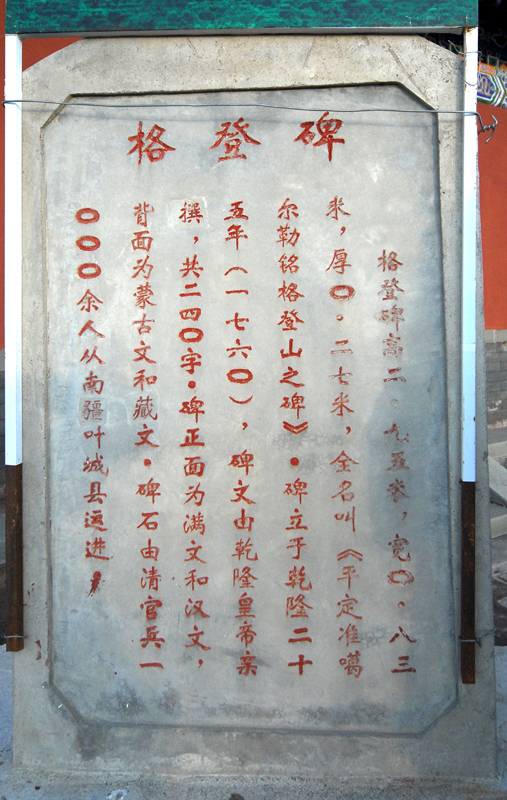 格登碑
格登碑高二·九五米，宽〇·八三
米，厚〇·二七米，全名叫《平定准噶
尔勒铭格登山之碑》·碑立于乾隆二十
五年（一七六〇），碑文由乾隆皇帝亲
撰，共二四〇字·碑正面为满文和汉文，
背面为蒙古文和藏文·碑石由清官兵一
〇〇〇余人从南疆叶城县运进！